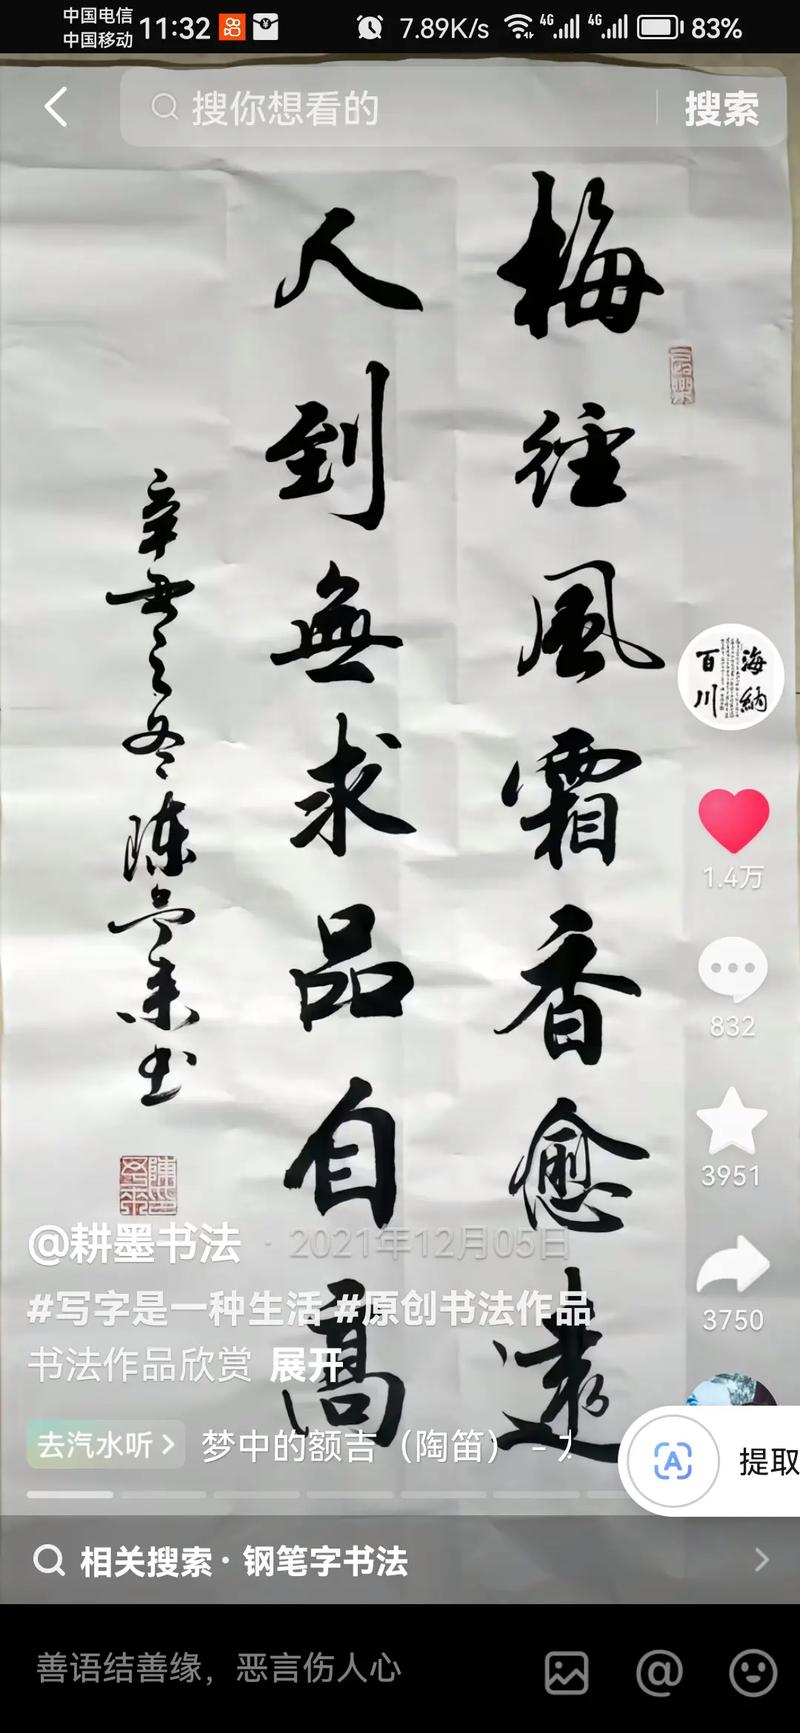 中国电信
中国移动 11:32 7.89K/s 4G 4G 83%
搜你想看的 搜索
梅經風霜香愈遠
人到無求品自高
辛丑之冬陈 书
海納
百川
1.4万
832
3951
3750
@耕墨书法 · 2021年12月05日
#写字是一种生活 #原创书法作品
书法作品欣赏 展开
去汽水听 梦中的额吉（陶笛） -
A 提取
相关搜索 · 钢笔字书法
善语结善缘，恶言伤人心